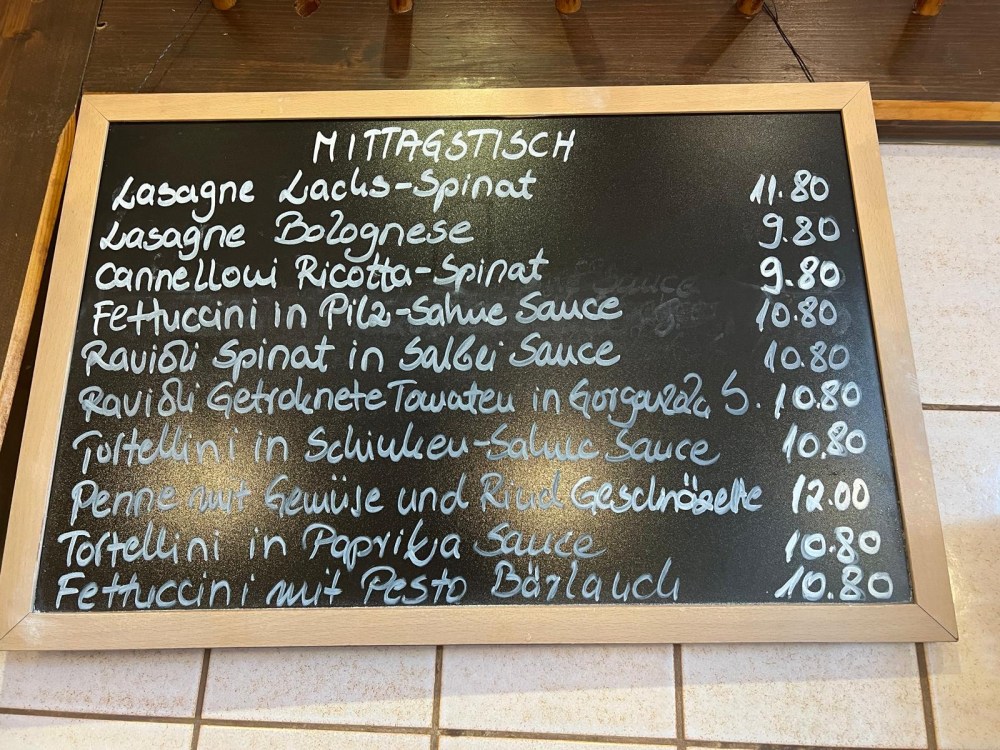 MITTAGSTISCH
Lasagne Lachs-Spinat 11.80
Lasagne Bolognese 9.80
Cannelloni Ricotta-Spinat 9.80
Fettuccini in Pilz-Sahne Sauce 10.80
Ravioli Spinat in Salbei Sauce 10.80
Ravioli Getroknete Tomaten in Gorgonzola S. 10.80
Tortellini in Schinken-Sahne Sauce 10.80
Penne mit Gemüse und Rind 12.00
Tortellini in Paprika Sauce 10.80
Fettuccini mit Pesto Bärlauch 10.80